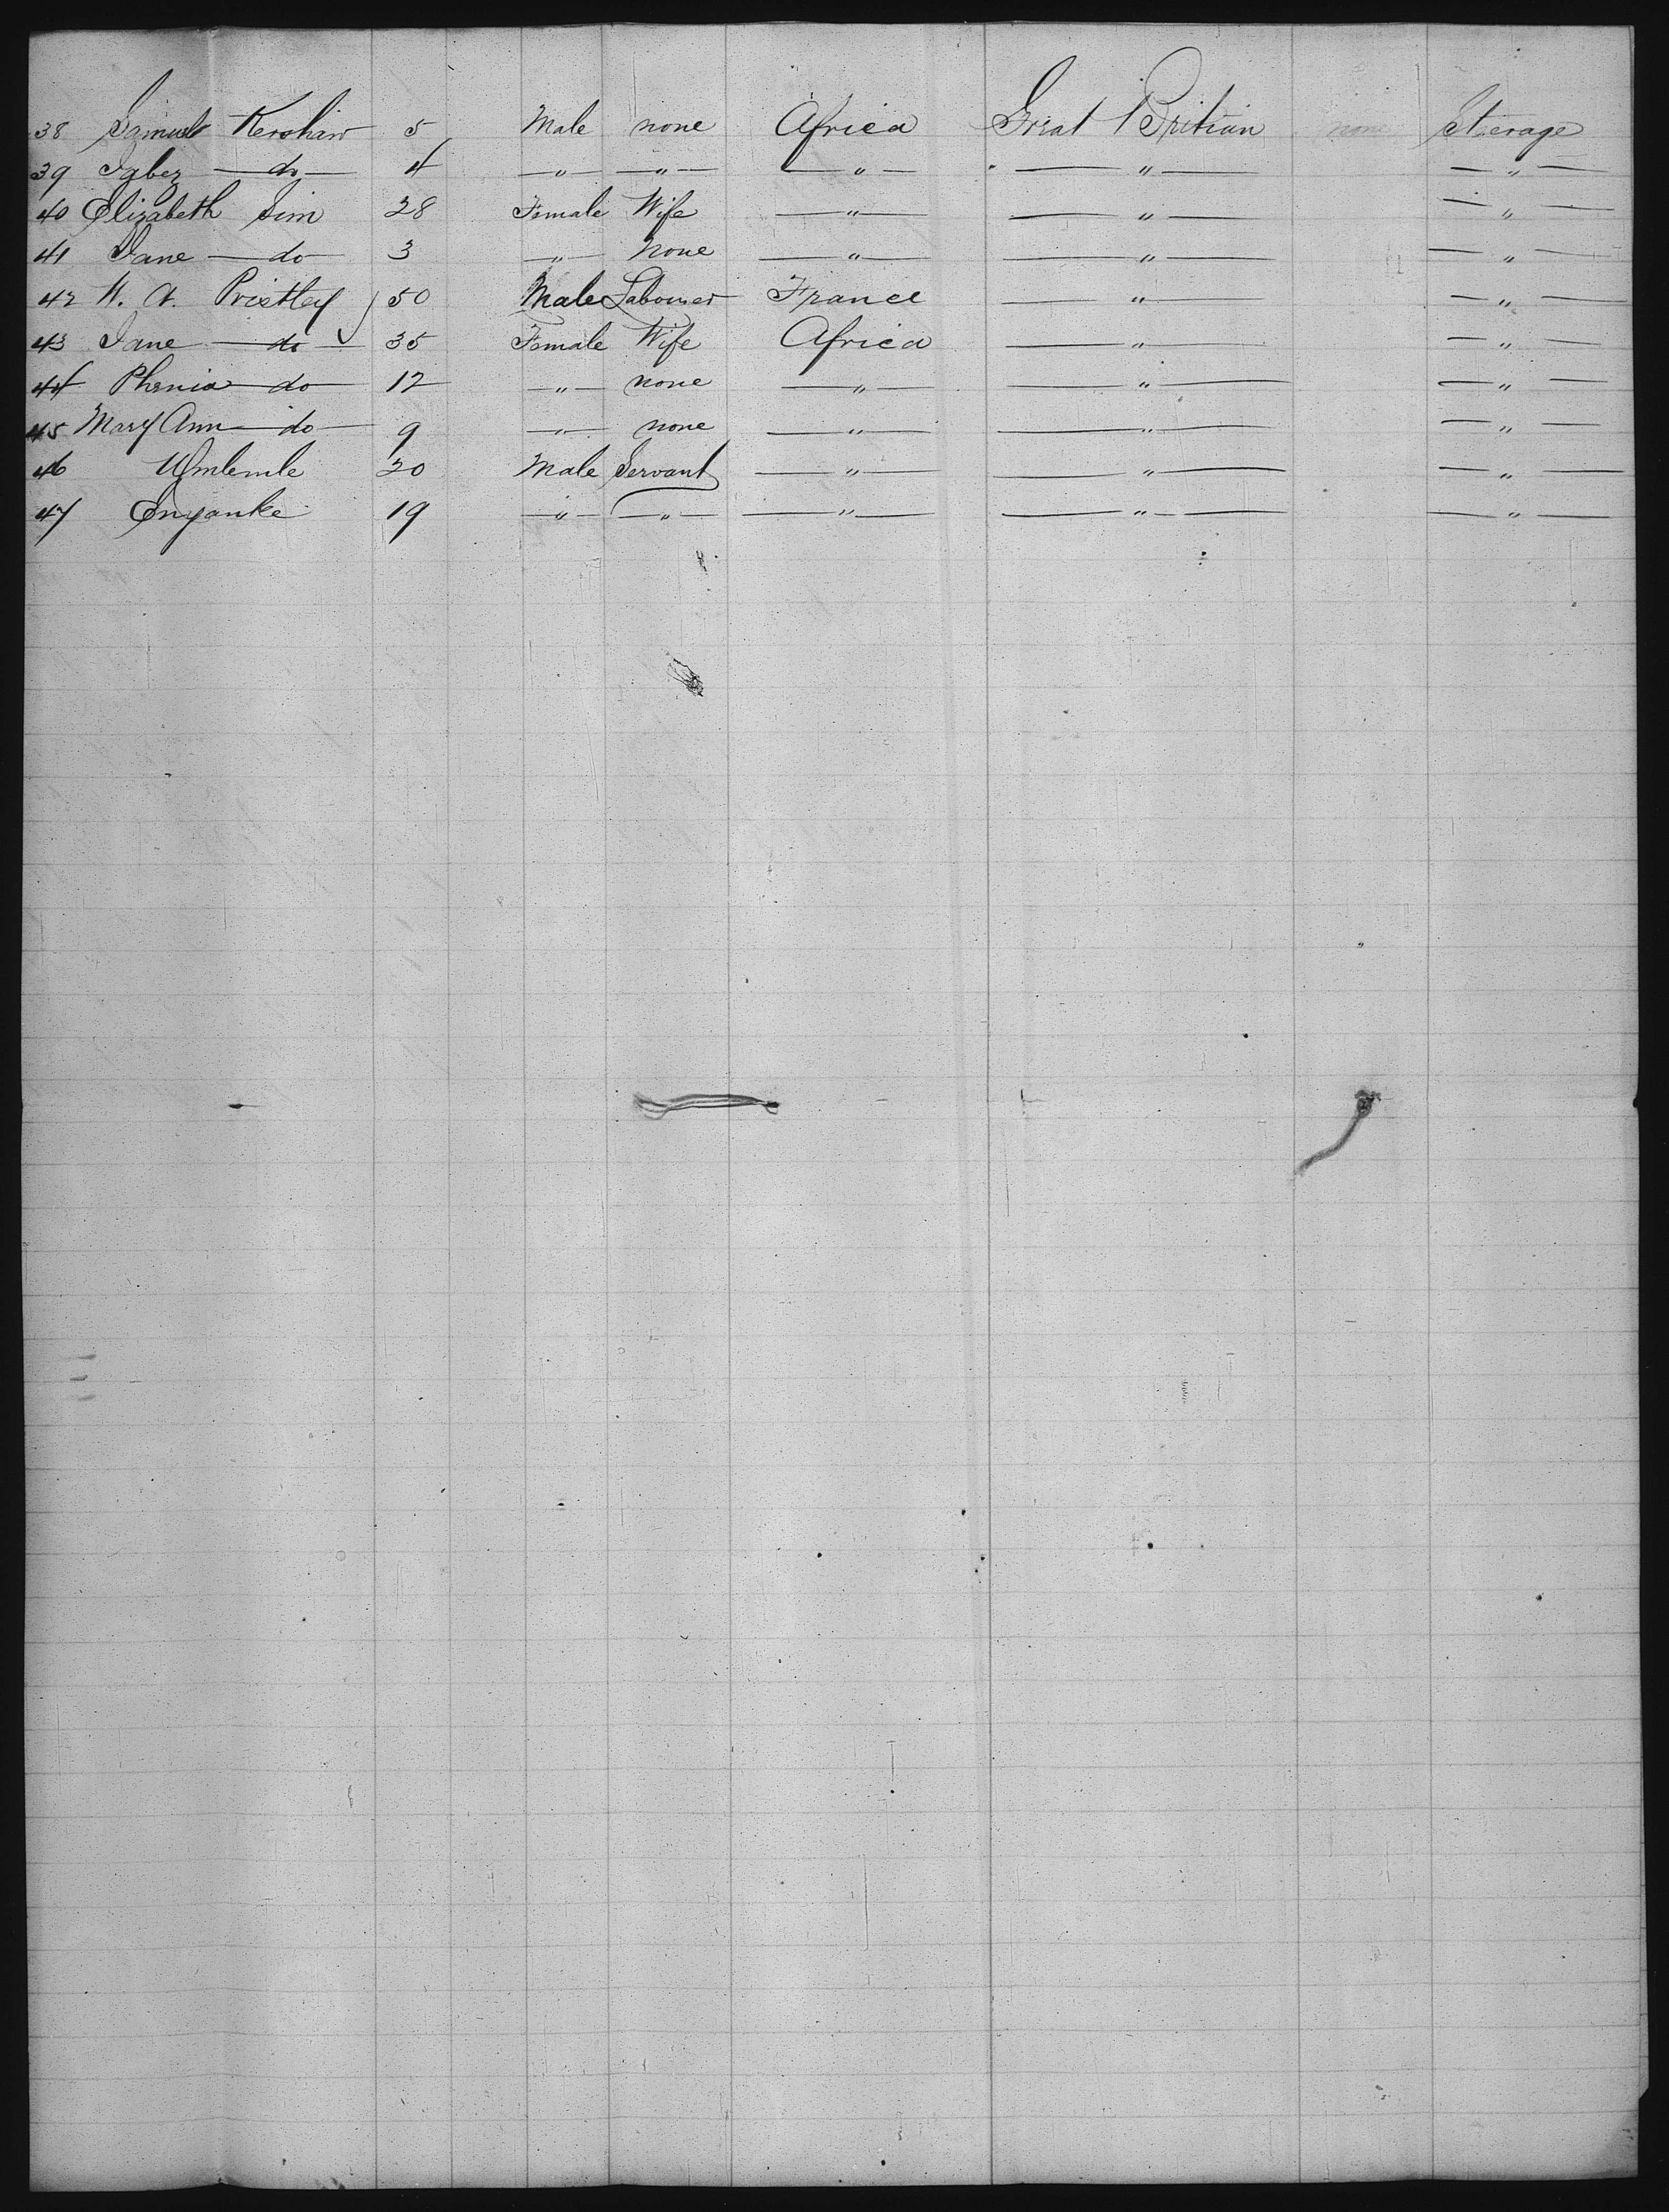 38 Samuel Kershaw 5 Male none Africa Great Britian none Steerage
39 Jabez — do — 4 — " — — " — — " — — " — — " —
40 Elizabeth Sim 28 Female Wife — " — — " — — " —
41 Jane — do — 3 — " — none — " — — " — — " —
42 W. A. Pristley 50 Male Labourer France — " — — " —
43 Jane — do — 35 Female Wife Africa — " — — " —
44 Phenia — do — 12 — " — none — " — — " — — " —
45 Mary Ann — do — 9 — " — none — " — — " — — " —
46 Umlemle 20 Male Servant — " — — " — — " —
47 Enyanke 19 — " — — " — — " — — " — — " —